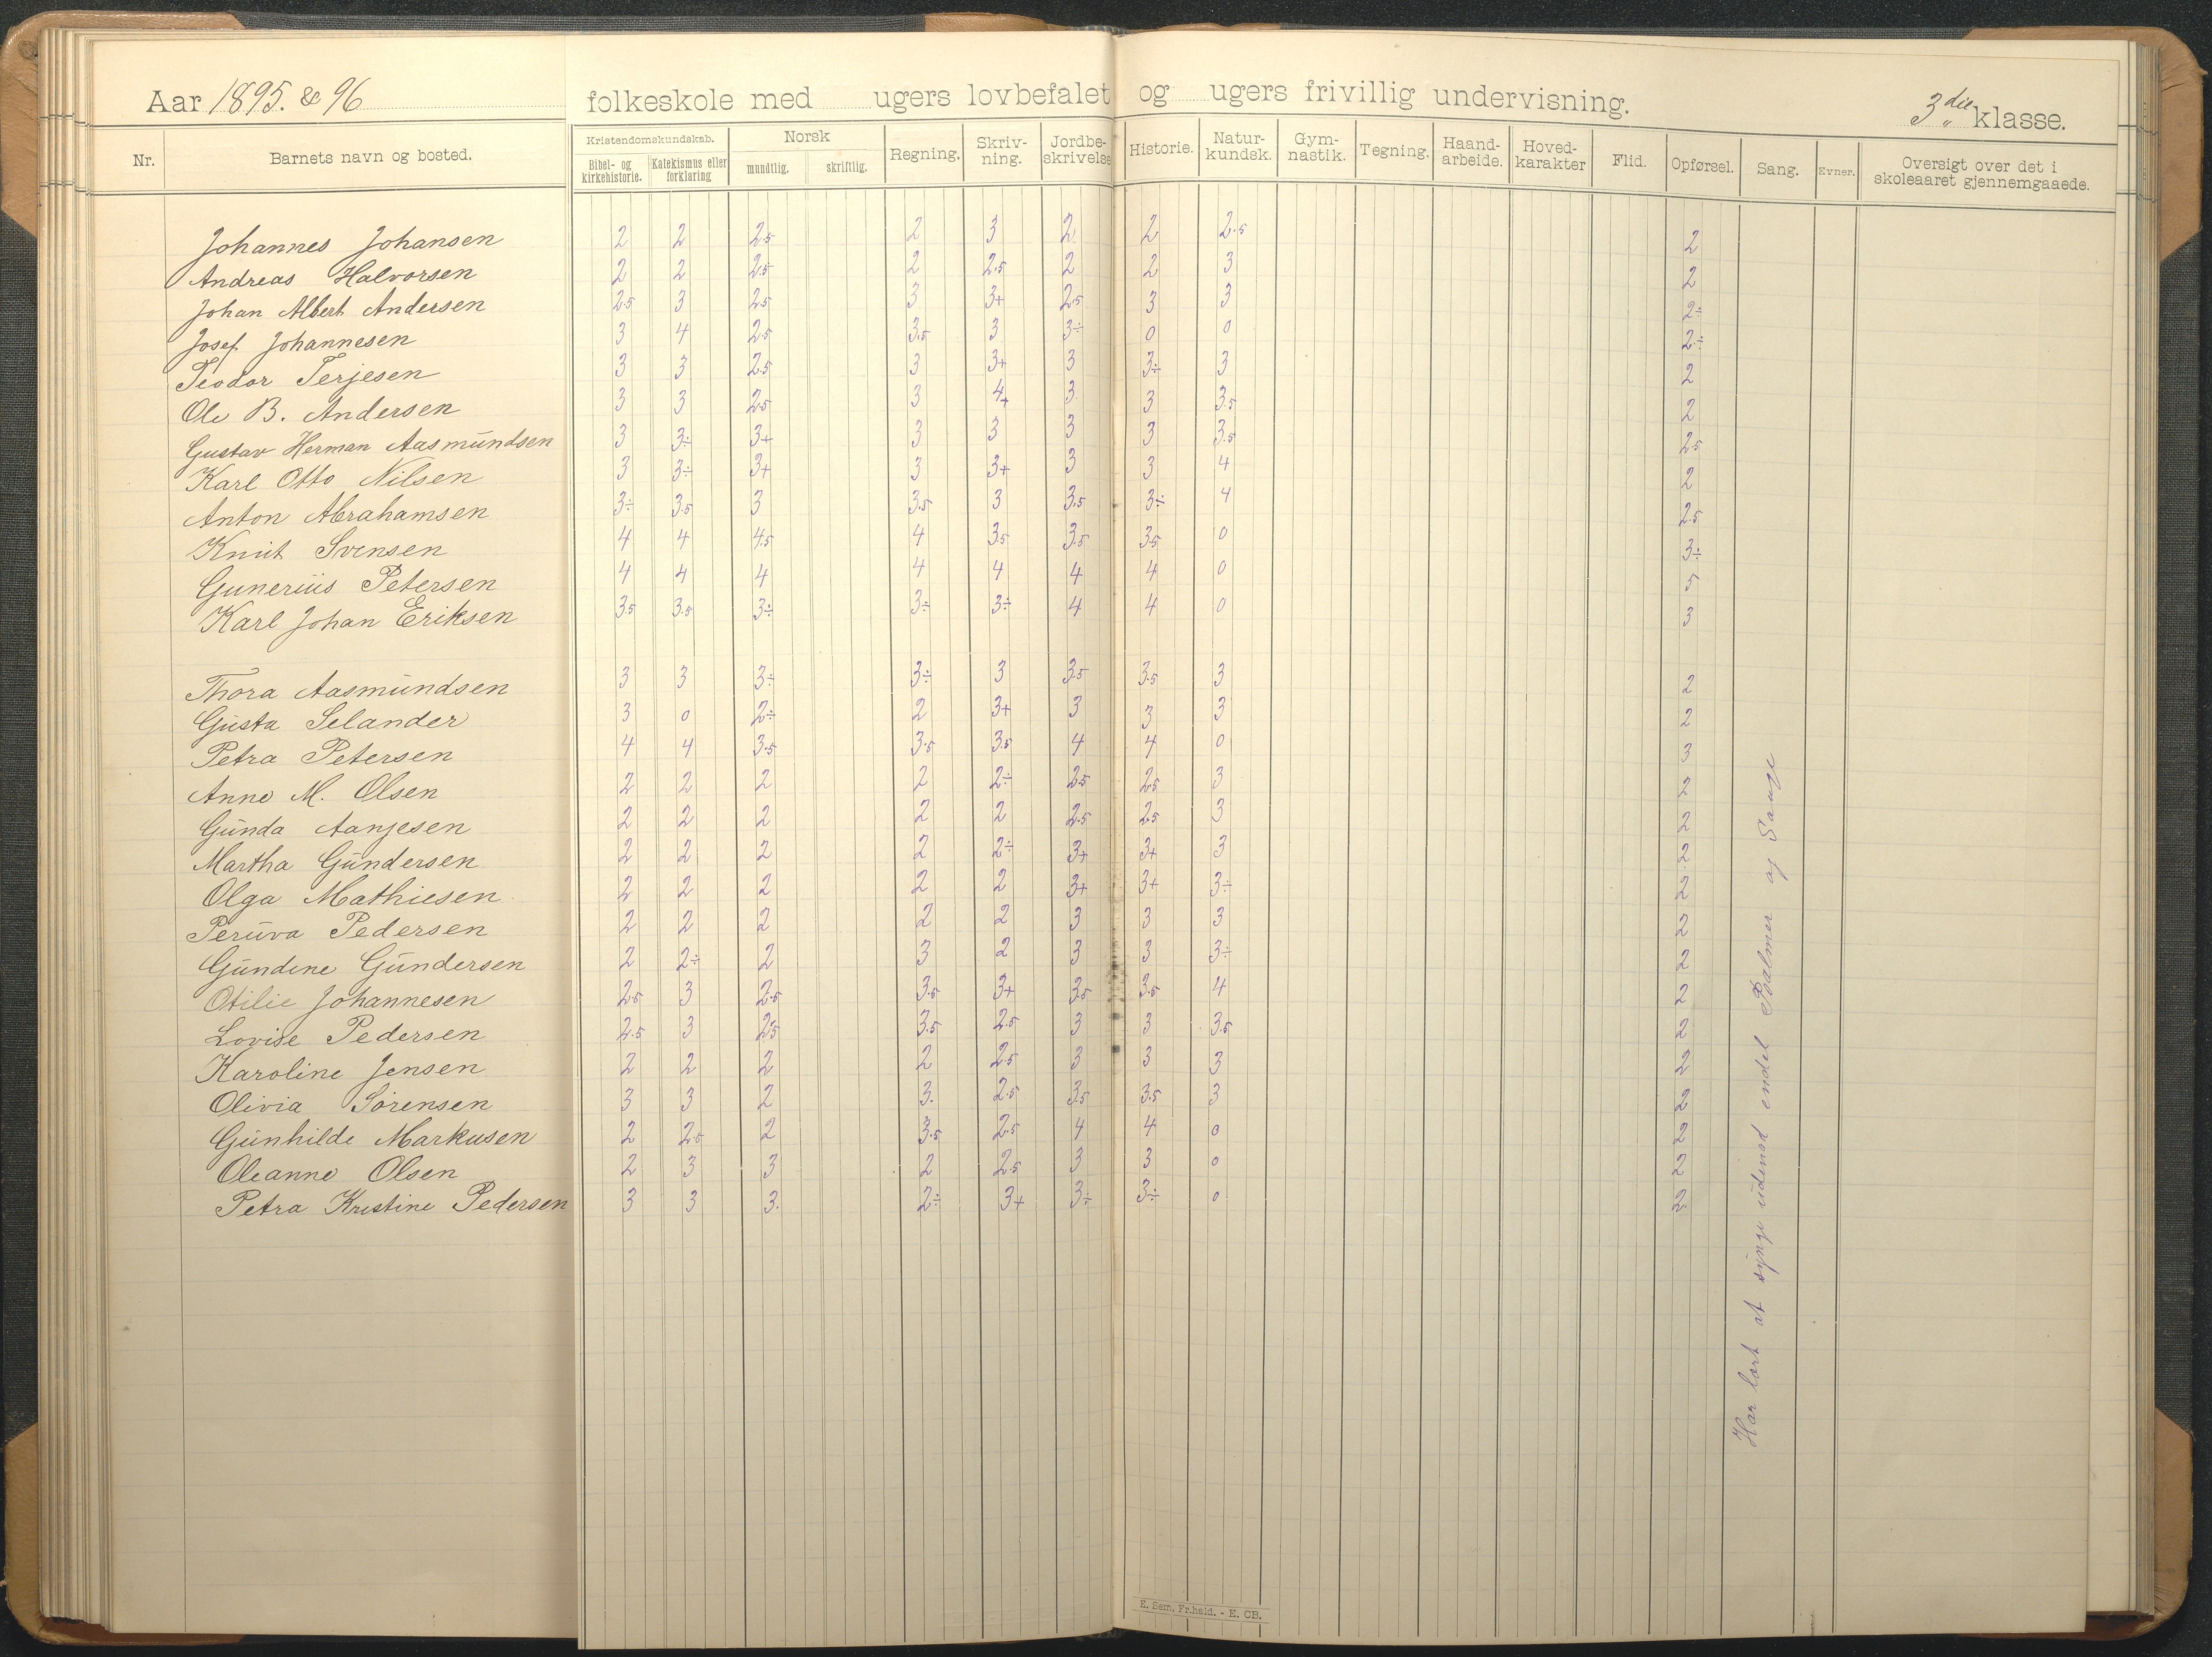 Aar 1895. & 96 folkeskole med ugers lovbefalet og ugers frivillig undervisning. 3die klasse.
Nr. Barnets navn og bosted. Kristendomskundskab. Bibel- og kirkehistorie. Katekismus eller forklaring Norsk mundtlig. skriftlig. Regning. Skriv-ning. Jordbe-skrivelse Historie. Natur-kundsk. Gym-nastik. Tegning. Haand-arbeide. Hoved-karakter Flid. Opførsel. Sang. Evner. Oversigt over det i skoleaaret gjennemgaaede.
Johannes Johansen 2 2 2.5 2 3 2 2 2.5 2
Andreas Halvorsen 2 2 2.5 2 2.5 2 2 3 2
Johan Albert Andersen 2.5 3 2.5 3 3+ 2.5 3 3 2÷
Josef Johannesen 3 4 2.5 3.5 3 3÷ 0 0 2÷
Teodor Terjesen 3 3 2.5 3 3+ 3 3÷ 3 2
Ole B. Andersen 3 3 2.5 3 4+ 3 3 3.5 2
Gustav Herman Aasmundsen 3 3÷ 3+ 3 3 3 3 3.5 2.5
Karl Otto Nilsen 3 3÷ 3+ 3 3+ 3 3 4 2
Anton Abrahamsen 3÷ 3.5 3 3.5 3 3.5 3÷ 4 2.5
Knut Svensen 4 4 4.5 4 3.5 3.5 3.5 0 3÷
Gunerius Petersen 4 4 4 4 4 4 4 0 5
Karl Johan Eriksen 3.5 3.5 3÷ 3÷ 3÷ 4 4 0 3
Thora Aasmundsen 3 3 3÷ 3÷ 3 3.5 3.5 3 2
Gusta Selander 3 0 2÷ 2 3+ 3 3 3 2
Petra Petersen 4 4 3.5 3.5 3.5 4 4 0 3
Anne M. Olsen 2 2 2 2 2÷ 2.5 2.5 3 2
Gunda Aanjesen 2 2 2 2 2 2.5 2.5 3 2
Martha Gundersen 2 2 2 2 2÷ 3+ 3+ 3 2
Olga Mathiesen 2 2 2 2 2 3+ 3+ 3÷ 2
Peruva Pedersen 2 2 2 2 2 3 3 3 2
Gundine Gundersen 2 2÷ 2 3 2 3 3 3÷ 2
Otilie Johannesen 2.5 3 2.5 3.5 3+ 3.5 3.5 4 2
Lovise Pedersen 2.5 3 2.5 3.5 2.5 3 3 3.5 2
Karoline Jensen 2 2 2 2 2.5 3 3 3 2
Olivia Sørensen 3 3 2 3. 2.5 3.5 3.5 3 2
Gunhilde Markusen 2 2.5 2 3.5 2.5 4 4 0 2
Oleanne Olsen 2 3 3 2 2.5 3 3 0 2
Petra Kristine Pedersen 3 3 3. 2÷ 3+ 3÷ 3÷ 0 2
Har lært at synge udenad endel Psalmer og Sange
E. Sem, Fr.hald. - E. CB.